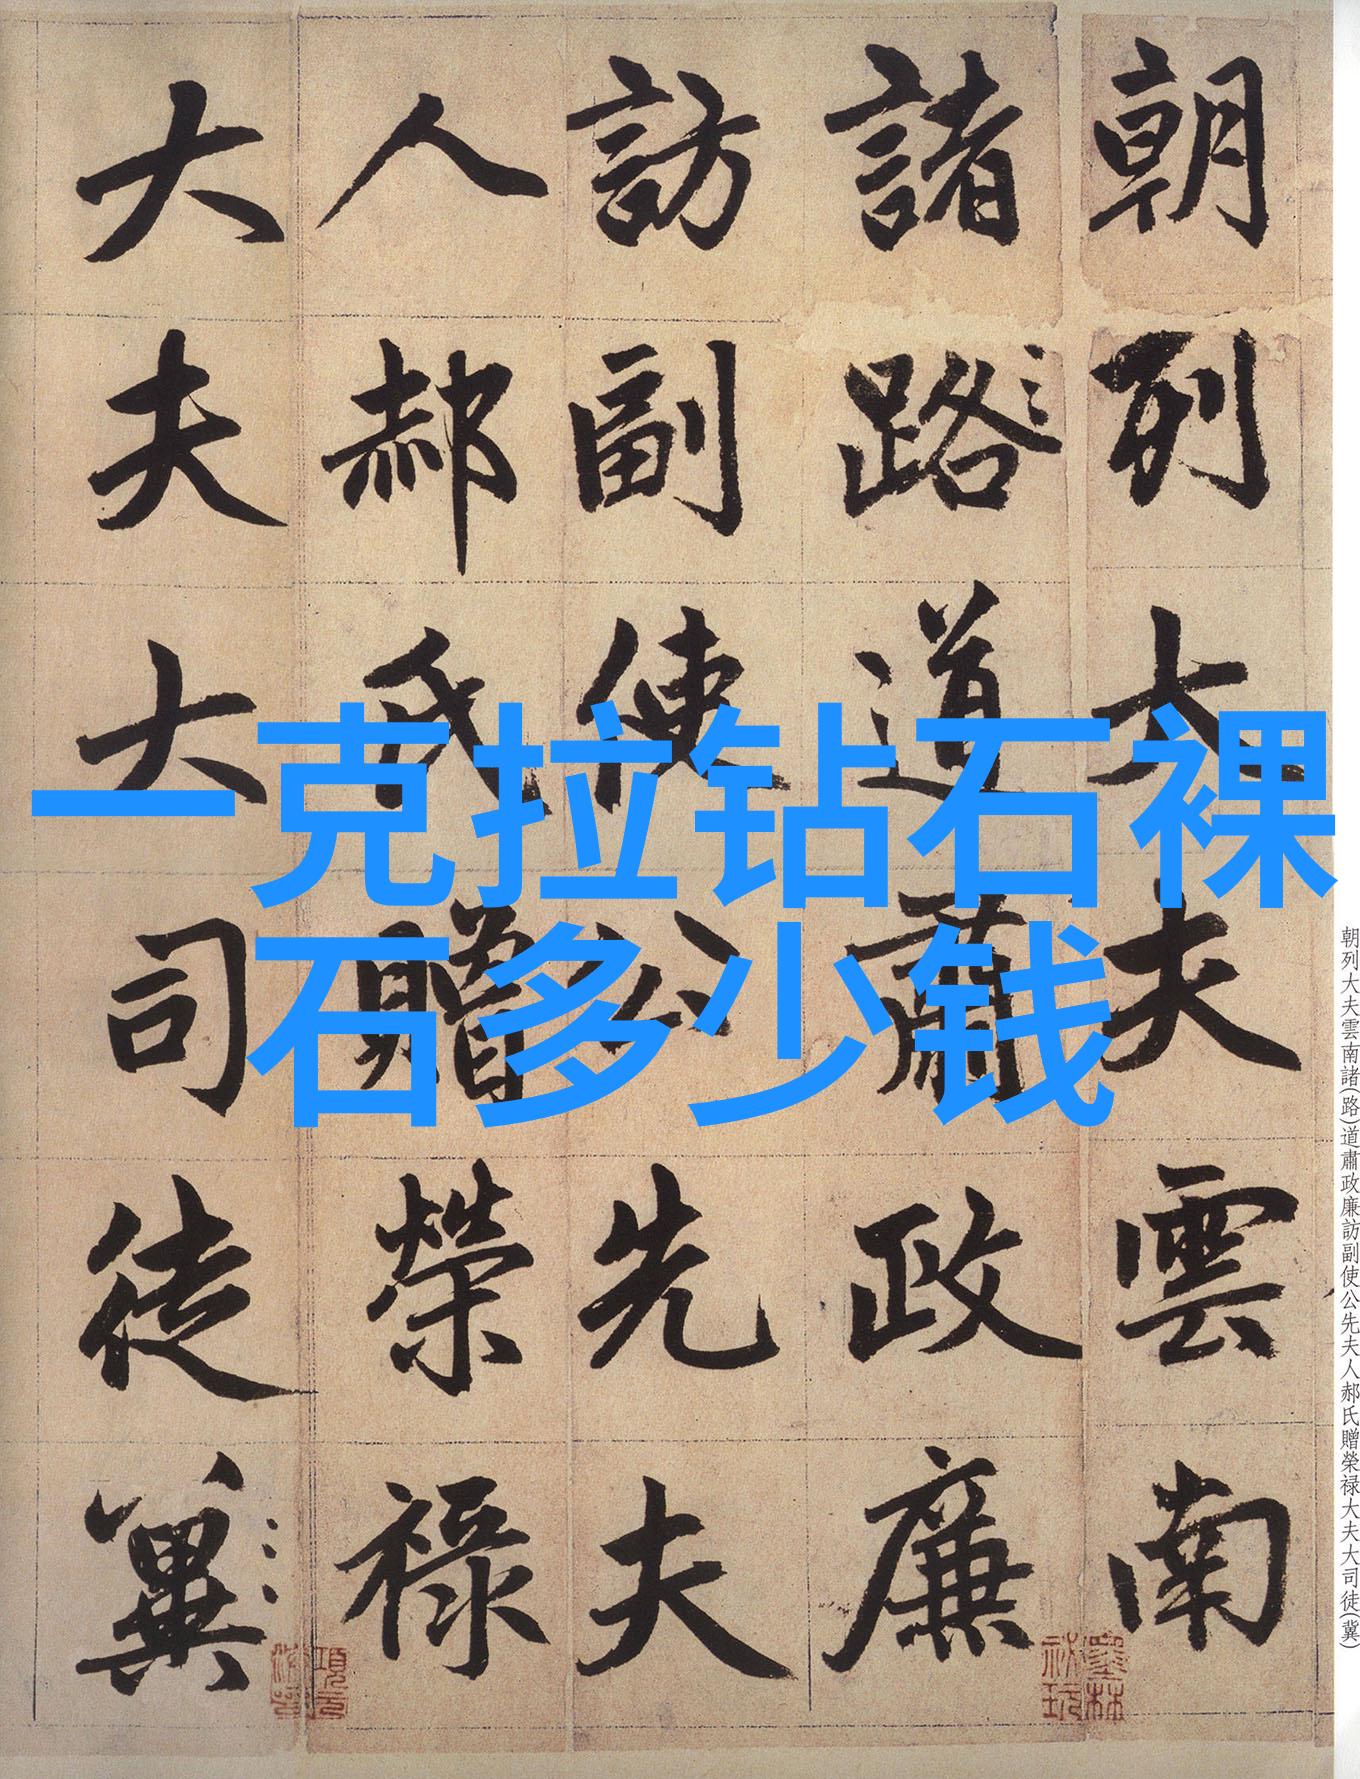 朝列大夫雲南
諸路道肅政廉
訪副使公先夫
人郝氏贈榮禄
大夫大司徒冀
一克拉钻石裸
石多少钱
朝列大夫雲南諸(路)道肅政廉訪副使公先夫人郝氏贈榮禄大夫大司徒(冀)